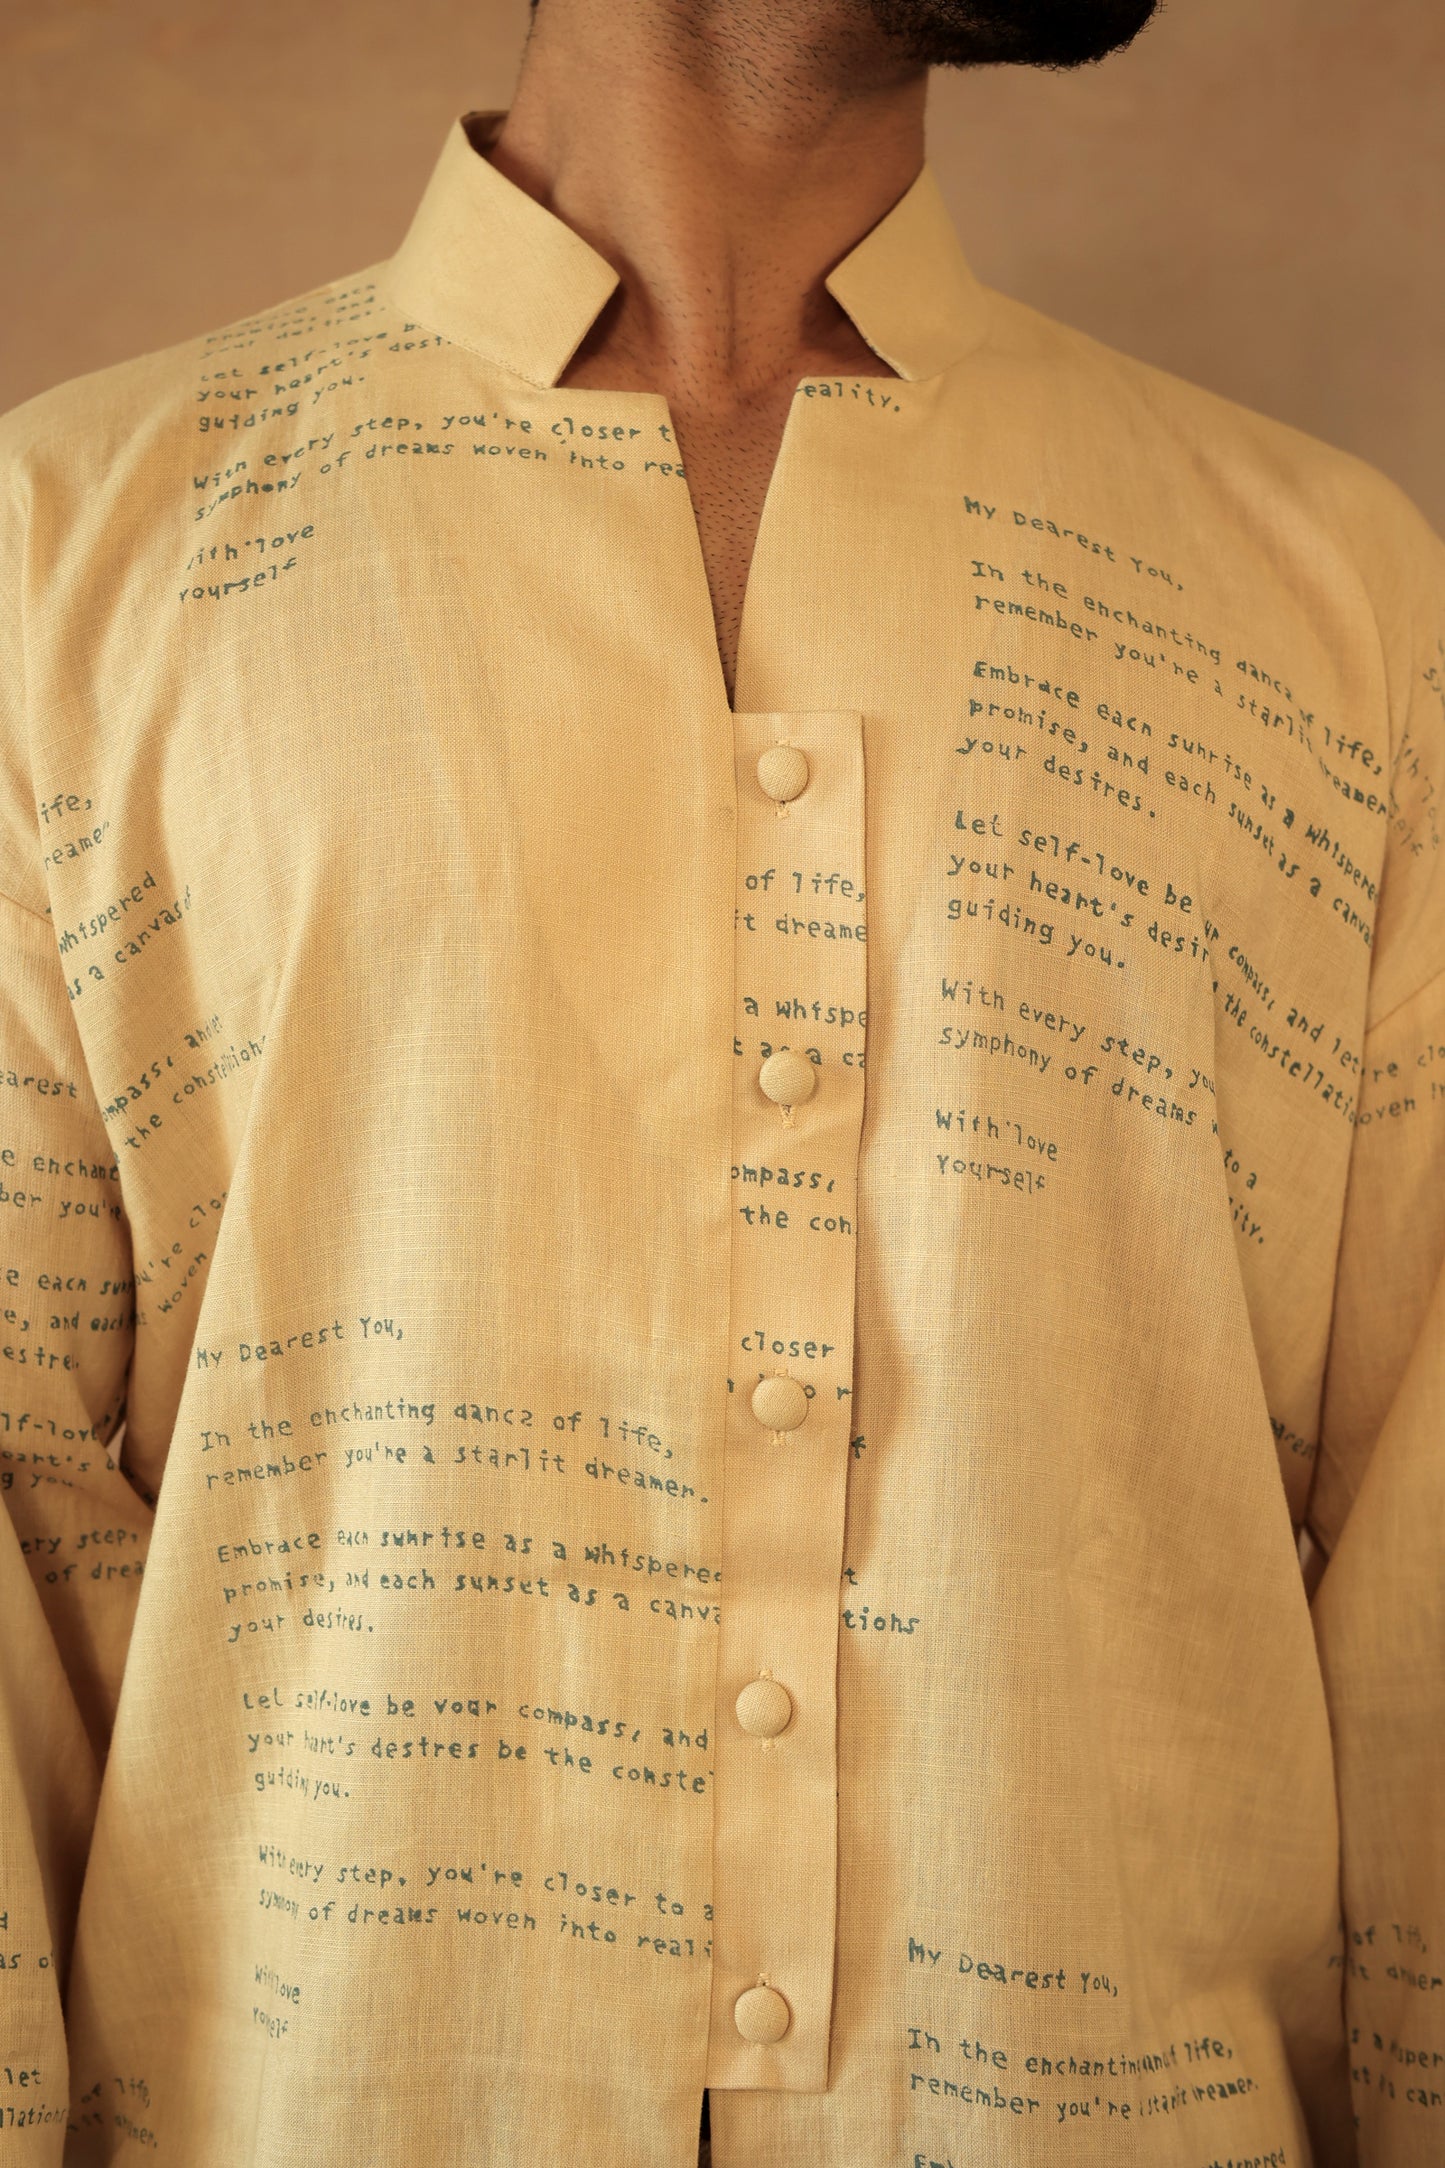 each
promise, and
your desires.
Let self-love b
your heart's desi
guiding you.
With every step, you're closer t
symphony of dreams woven into rea
With love
Yourself
eality.
My Dearest You,
In the enchanting dance of life,
remember you're a starlit dreamer
Embrace each sunrise as a whispered
promise, and each sunset as a canvas
your desires.
Let self-love be ur compass, and let
your heart's desir the constellatio
guiding you.
With every step, you to a
symphony of dreams ity.
With love
Yourself
re clo
oven in
ife,
reamer
whispered
as a canvas of
ompass, and let
the constellation
ou're clos
woven
earest
e enchant
ber you're
e each sun
e, and each
esires
lf-love
eart's d
g you.
ery step,
of drea
of life,
it dreame
a whispe
t as a ca
ompass,
the con
closer
f
t
tions
My Dearest You,
In the enchanting dance of life,
remember you're a starlit dreamer.
Embrace each sunrise as a whispered
promise, and each sunset as a canva
your desires.
Let self-love be your compass, and
your heart's desires be the constel
guiding you.
With every step, you're closer to a
symphony of dreams woven into reali
With love
Yourself
earest
My Dearest You,
In the enchanting of life,
remember you're starlit dreamer.
Em whispered
let
llations
of life,
of life,